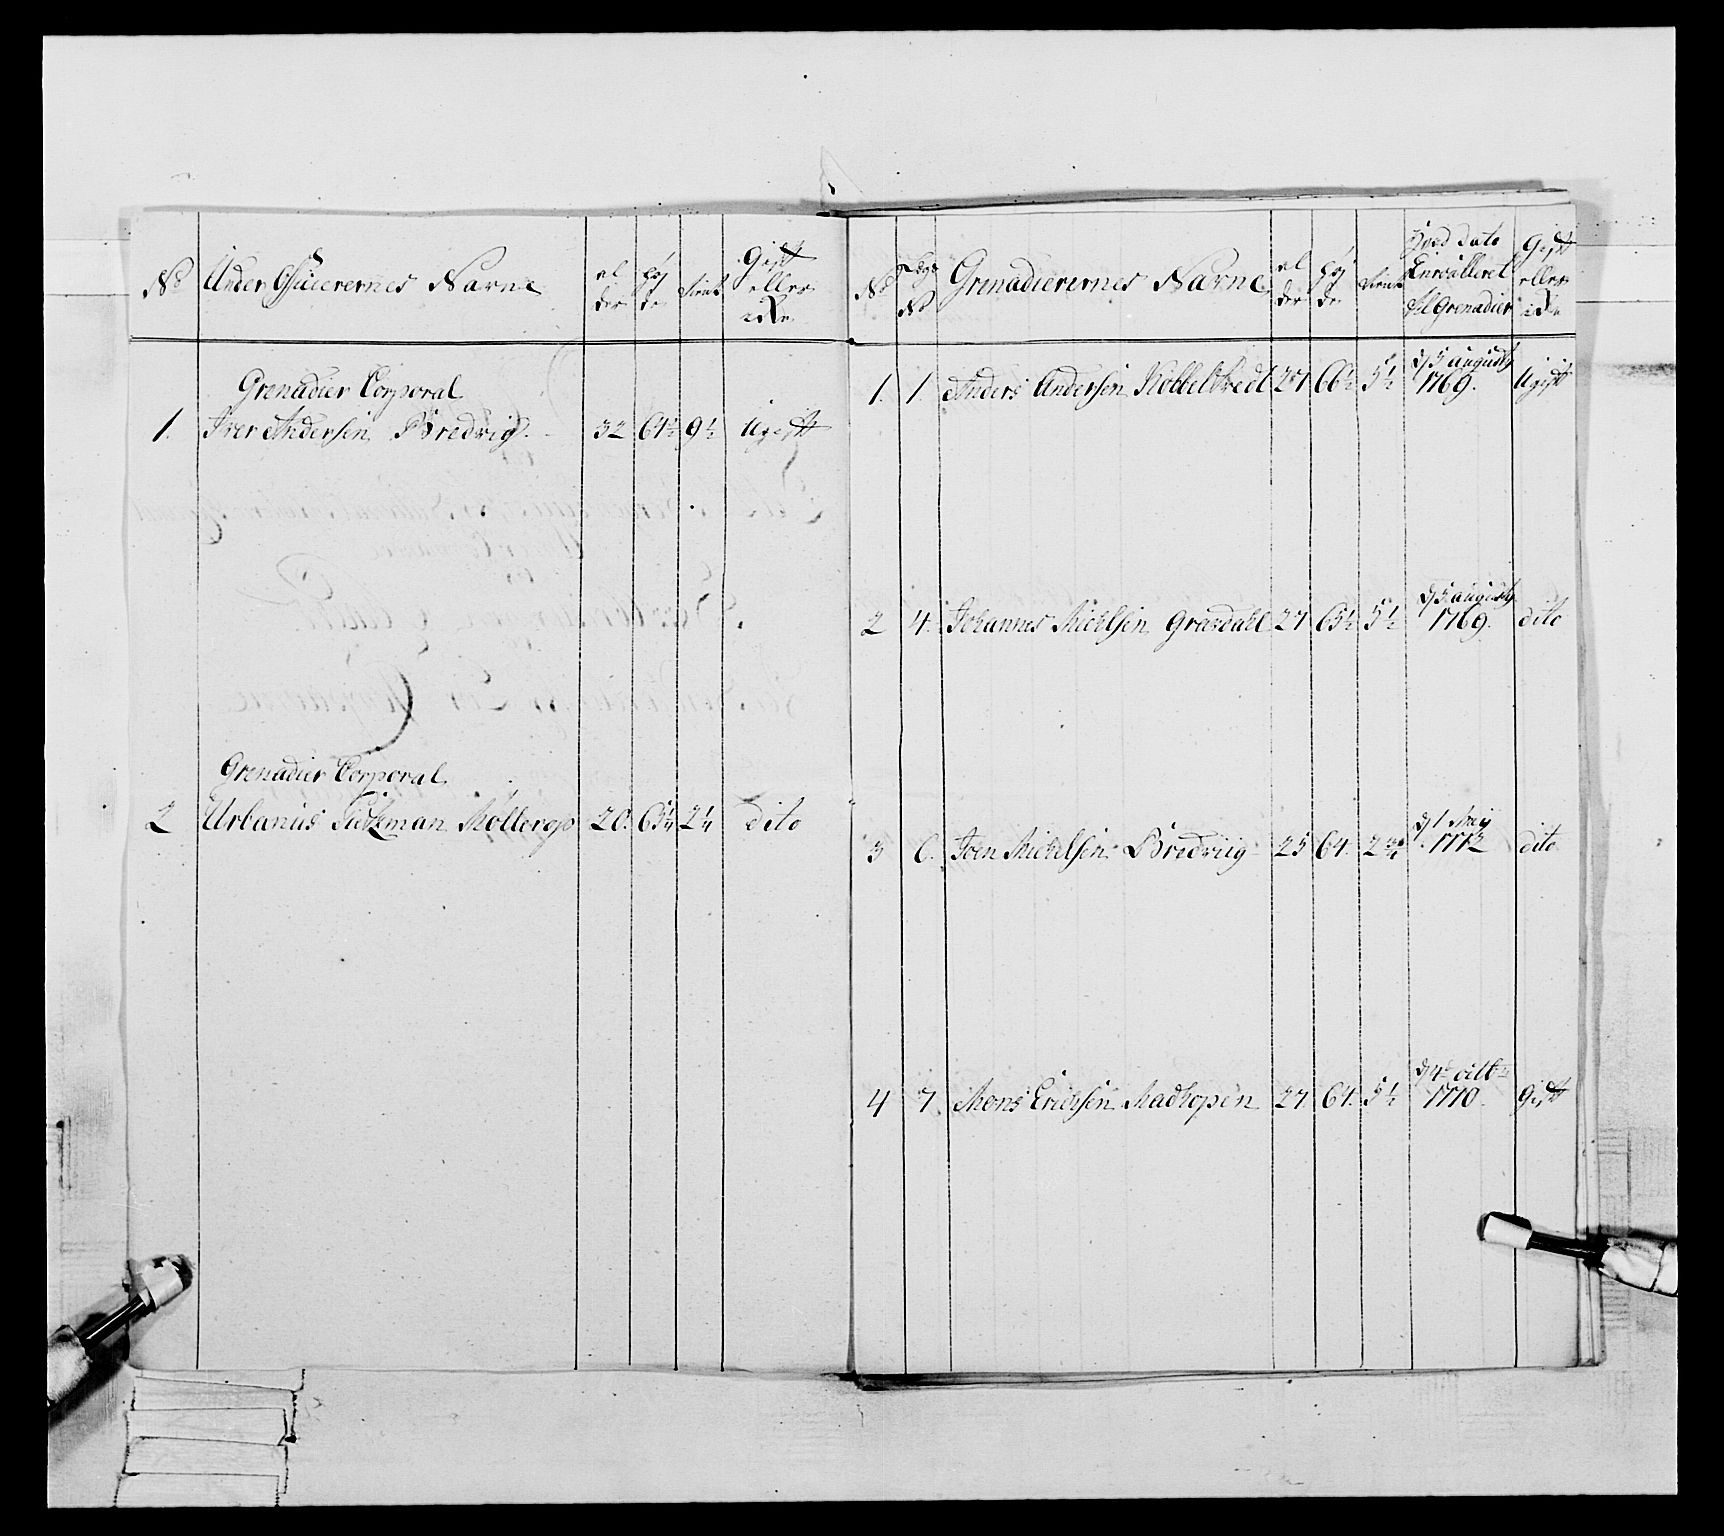 No Under Officerernes Navne al der høj de tient Gift eller icke
Grenadier Corporal
1. Iver Andersen Bredvig 32 61½ 9½ Ugift
Grenadier Corporal
2 Urbanus Møllerop 20. 63¼ 2¼ dito
No Lægs No Grenadierernes Navne al der høj de tient Hvad Dato Enroulleret til Grenadier Gift eller icke
1. 1. Anders Andersen Kobbeltvedt 27 66½ 5½ d 5 augusty 1769. Ugift
2 4. Johannes Michelsen Gravdahl 27 65½ 5½ d 5 augusty 1769. dito
3 6. Joen Michelsen Bredviig 25 64. 2¾ d 1 May 1772 dito
4 7. Mons Erichsen Madhopen 27. 64. 5½ d 4 octb 1770. Gift